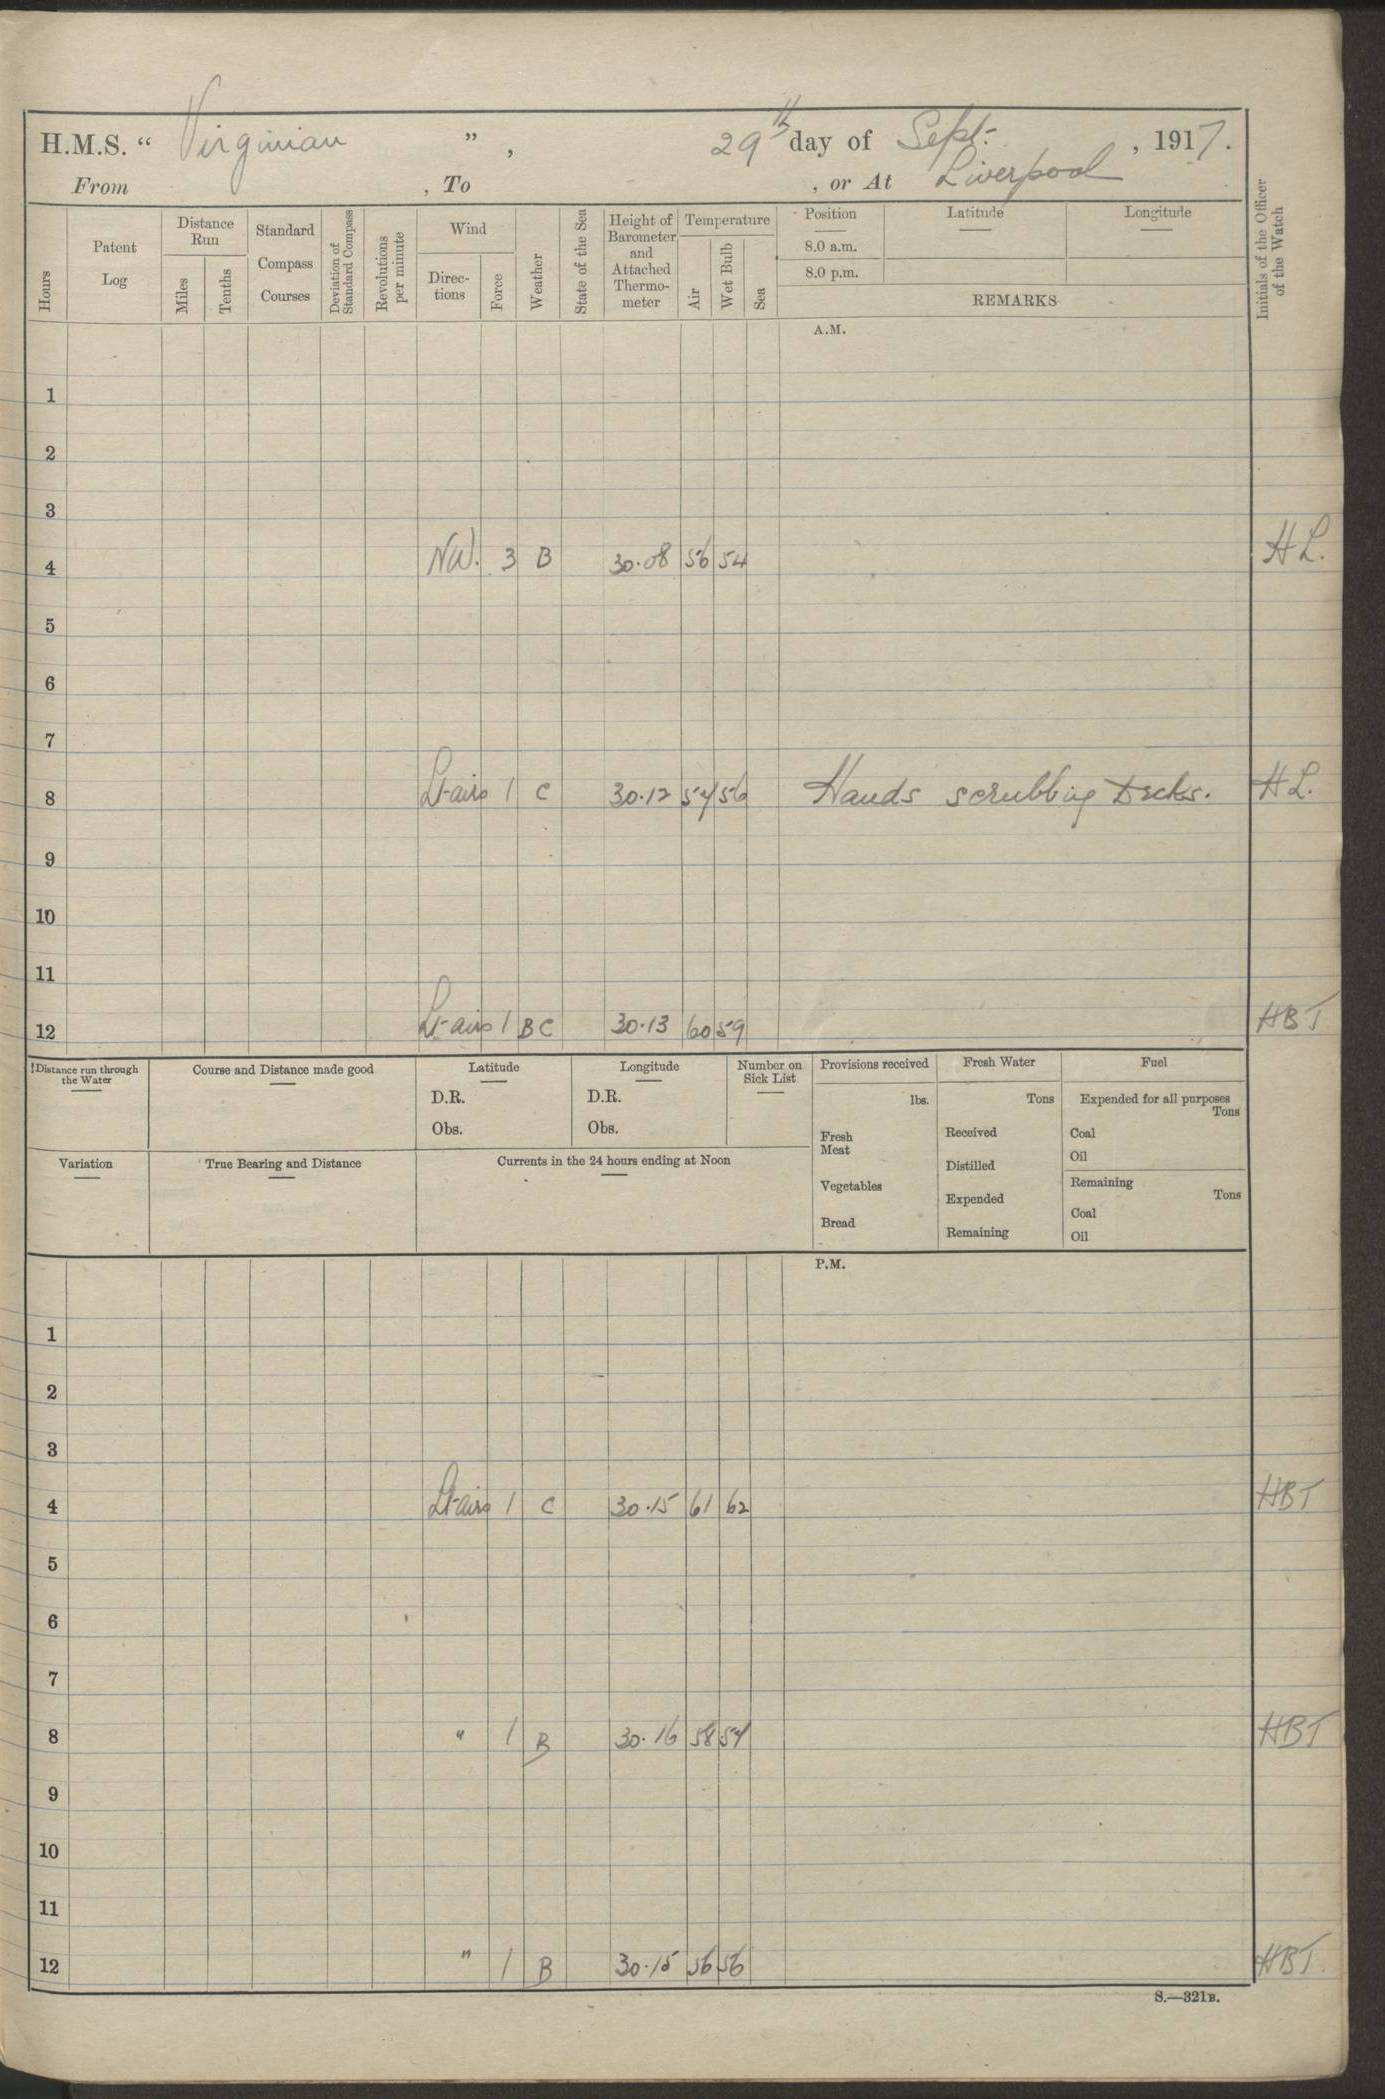 H.M.S. " Virginian ", 29th day of Sept. , 1917.
From , To , or At Liverpool
Hours
Patent Log
Distance Run
Miles
Tenths
Standard Compass Courses
Deviation of Standard Compass
Revolutions per minute
Wind
Directions
Force
Weather
State of the Sea
Height of Barometer and Attached Thermometer
Temperature
Air
Wet Bulb
Sea
Position
8.0 a.m.
8.0 p.m.
Latitude
Longitude
REMARKS
Initials of the Officer of the Watch
A.M.
1
2
3
4 NW. 3 B 30.08 56 54 HL.
5
6
7
8 Lt airs 1 C 30.12 57 56 Hands scrubbing Decks. HL.
9
10
11
12 Lt airs 1 BC 30.13 60 59 HBT
Distance run through the Water
Course and Distance made good
Latitude
D.R.
Obs.
Longitude
D.R.
Obs.
Number on Sick List
Variation
True Bearing and Distance
Currents in the 24 hours ending at Noon
Provisions received
lbs.
Fresh Meat
Vegetables
Bread
Fresh Water
Tons
Received
Distilled
Expended
Remaining
Fuel
Expended for all purposes
Tons
Coal
Oil
Remaining
Tons
Coal
Oil
P.M.
1
2
3
4 Lt airs 1 C 30.15 61 62 HBT
5
6
7
8 " 1 B 30.16 58 57 HBT
9
10
11
12 " 1 B 30.15 56 56 HBT.
S.—321B.